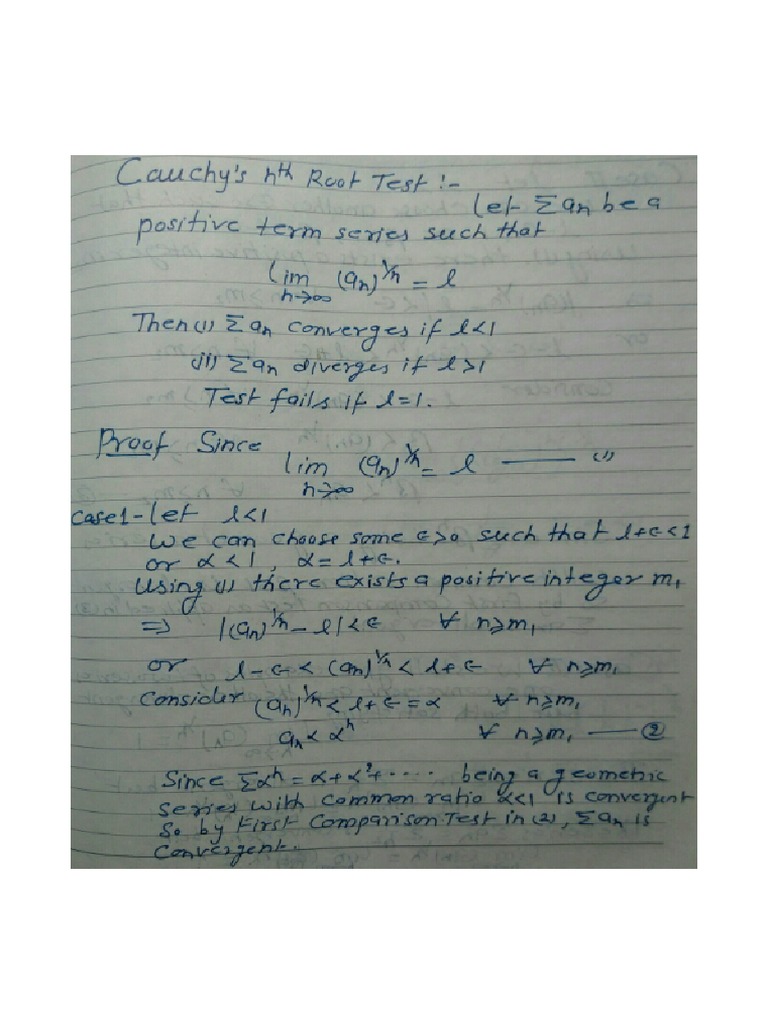 Cauchy's nth Root Test :-
Let Σan be a
positive term series such that
lim n→∞ (an)^1/n = l
Then (i) Σan converges if l<1
(ii) Σan diverges if l>1
Test fails if l=1.
Proof Since
lim n→∞ (an)^1/n = l —— (1)
Case 1 - Let l<1
We can choose some ϵ>0 such that l+ϵ<1
or α<1, α=l+ϵ.
Using (1) there exists a positive integer m₁
⇒ |(an)^1/n - l|<ϵ ∀ n≥m₁
or l-ϵ < (an)^1/n < l+ϵ ∀ n≥m₁
Consider (an)^1/n < l+ϵ = α ∀ n≥m₁
an < α^n ∀ n≥m₁ —— ②
Since Σα^n = α+α²+ ..... being a geometric
series with common ratio α<1 is convergent
So by First Comparison Test in (2), Σan is
convergent.